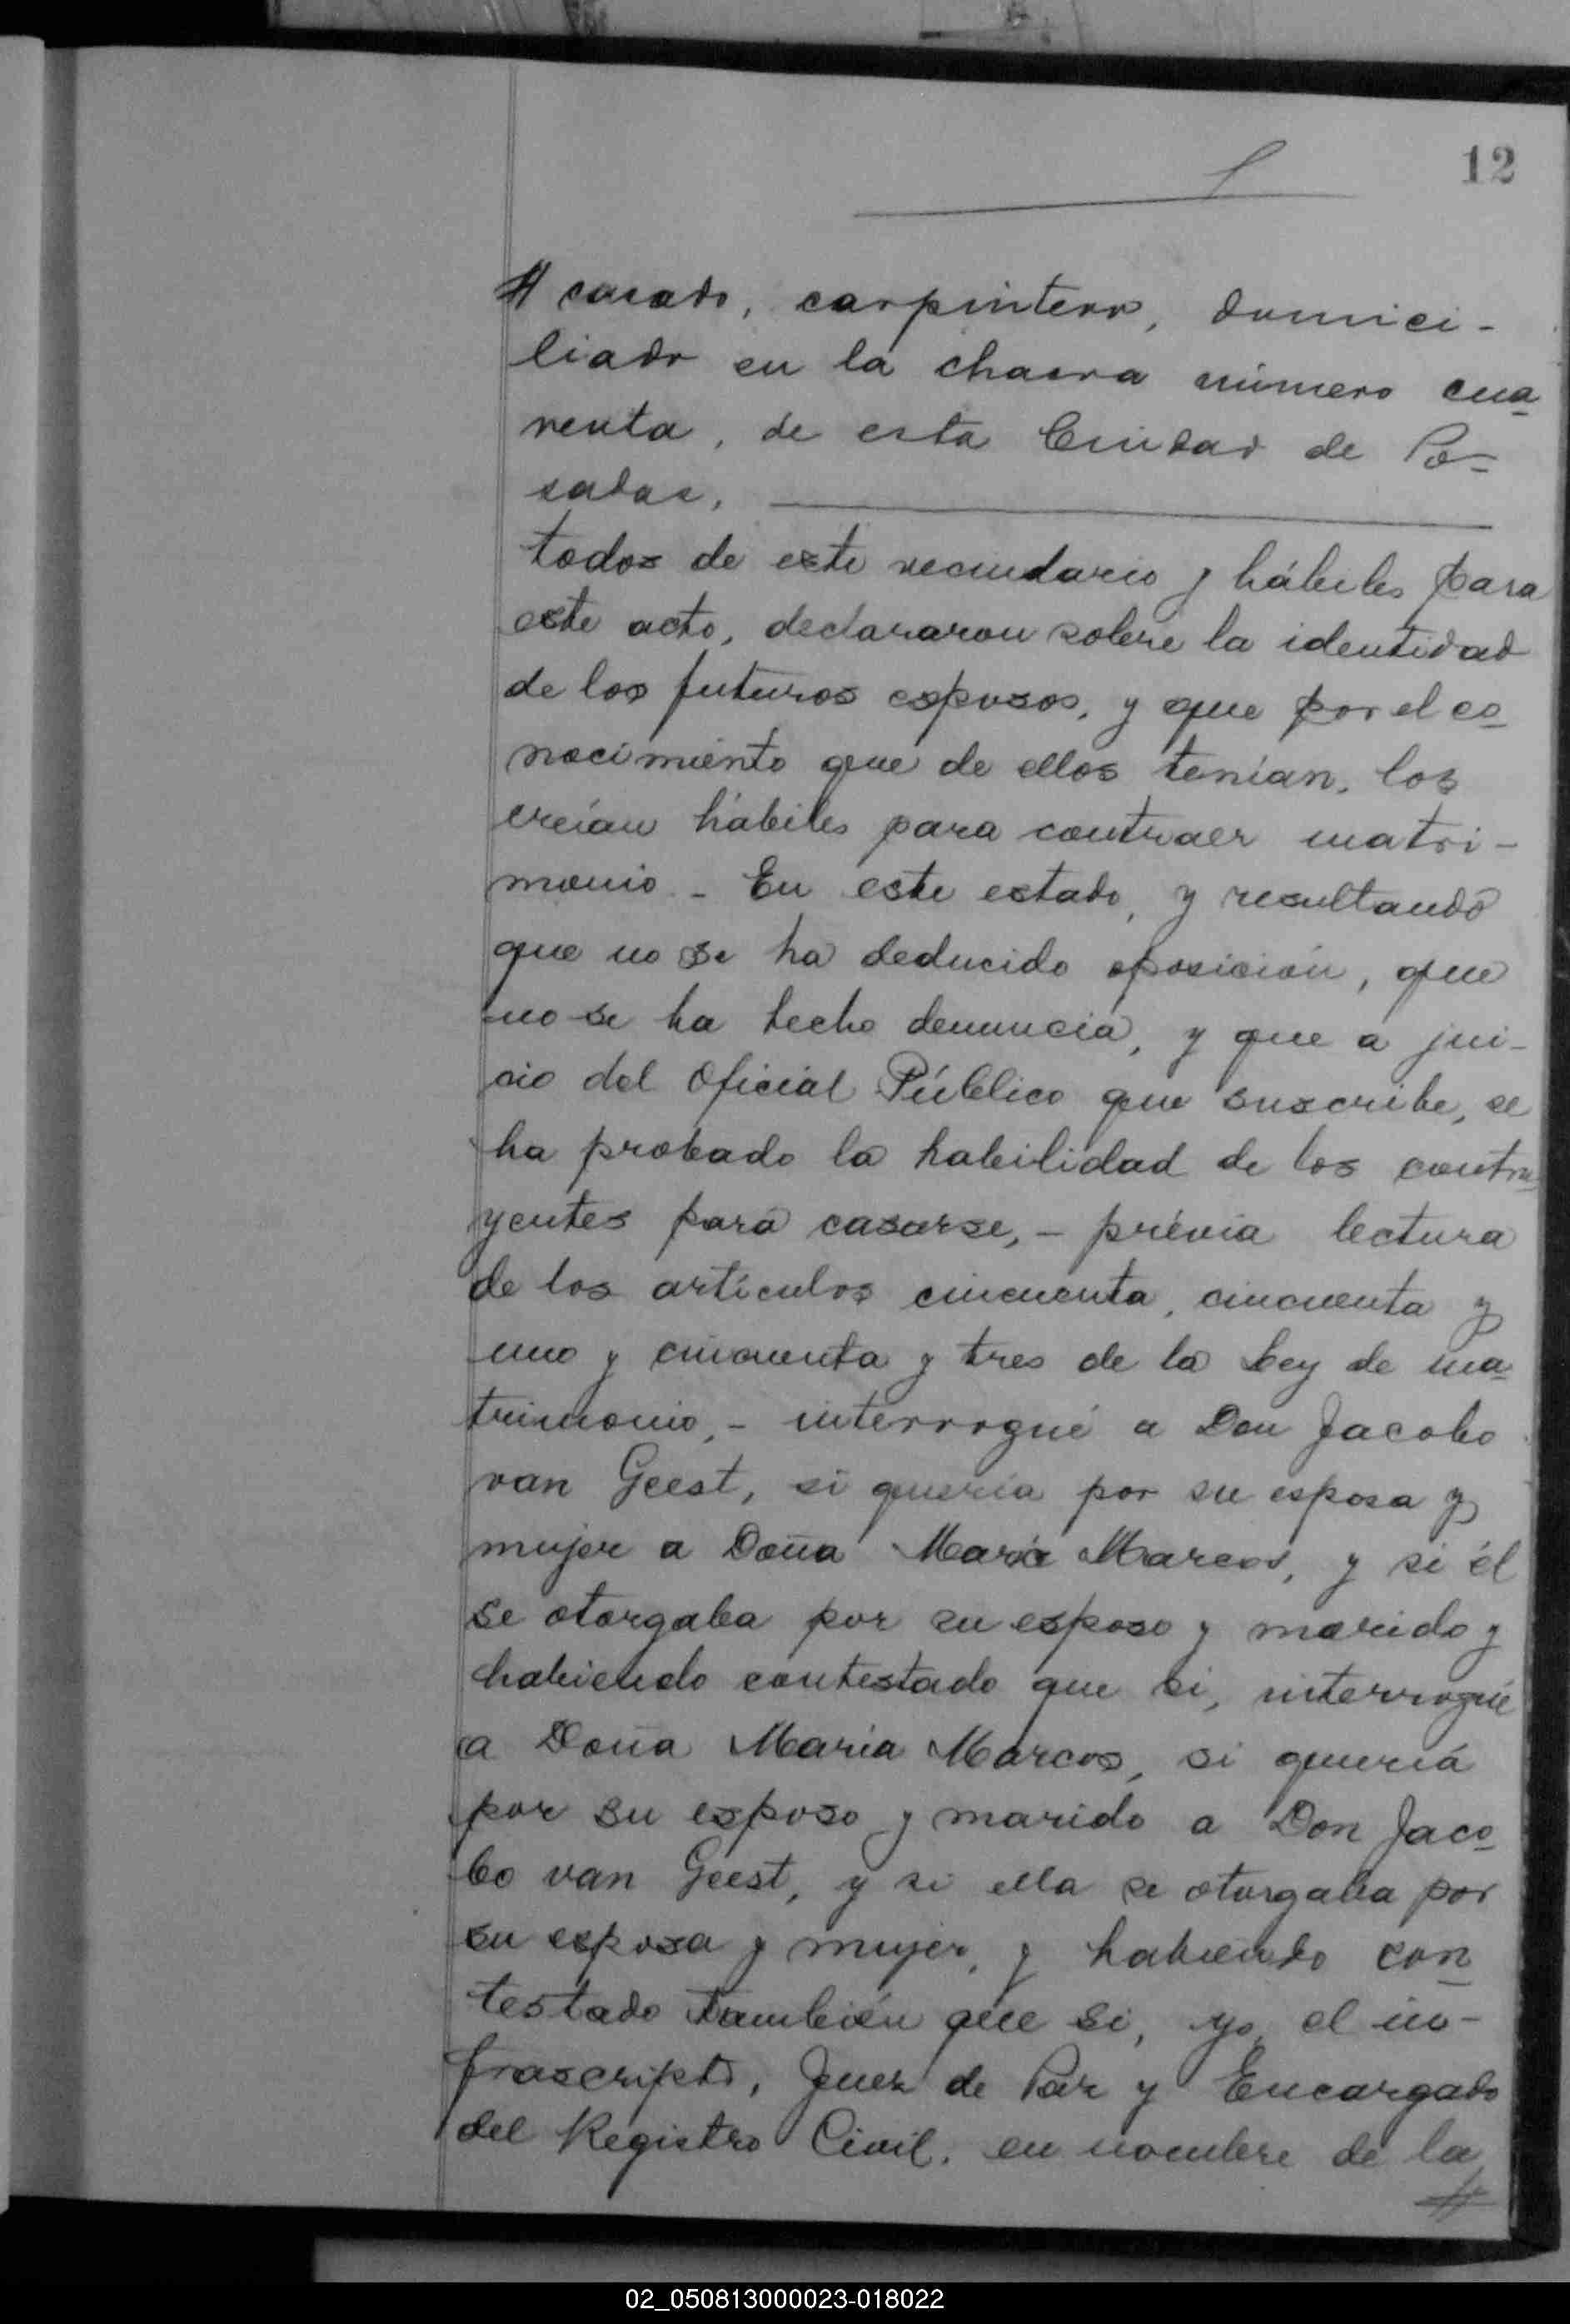 12
// casado, carpintero, domici-
liado en la chacra número cua-
renta, de esta Ciudad de Po-
sadas,
todos de este vecindario y hábiles para
este acto, declararon sobre la identidad
de los futuros esposos, y que por el co-
nocimiento que de ellos tenían, los
creían hábiles para contraer matri-
monio - En este estado, y resultando
que no se ha deducido oposición, que
no se ha hecho denuncia, y que a jui-
cio del Oficial Público que suscribe, se
ha probado la habilidad de los contra-
yentes para casarse, - prévia lectura
de los artículos cincuenta, cincuenta y
uno y cincuenta y tres de la Ley de ma-
trimonio, - interrogué a Don Jacobo
van Geest, si quería por su esposa y
mujer a Doña María Marcos, y si él
se otorgaba por su esposo y marido y
habiendo contestado que si, interrogué
a Doña María Marcos, si quería
por su esposo y marido a Don Jaco-
bo van Geest, y si ella se otorgaba por
su esposa y mujer, y habiendo con-
testado también que si, yo, el in-
frascripto, Juez de Paz y Encargado
del Registro Civil, en nombre de la
//
02_050813000023-018022